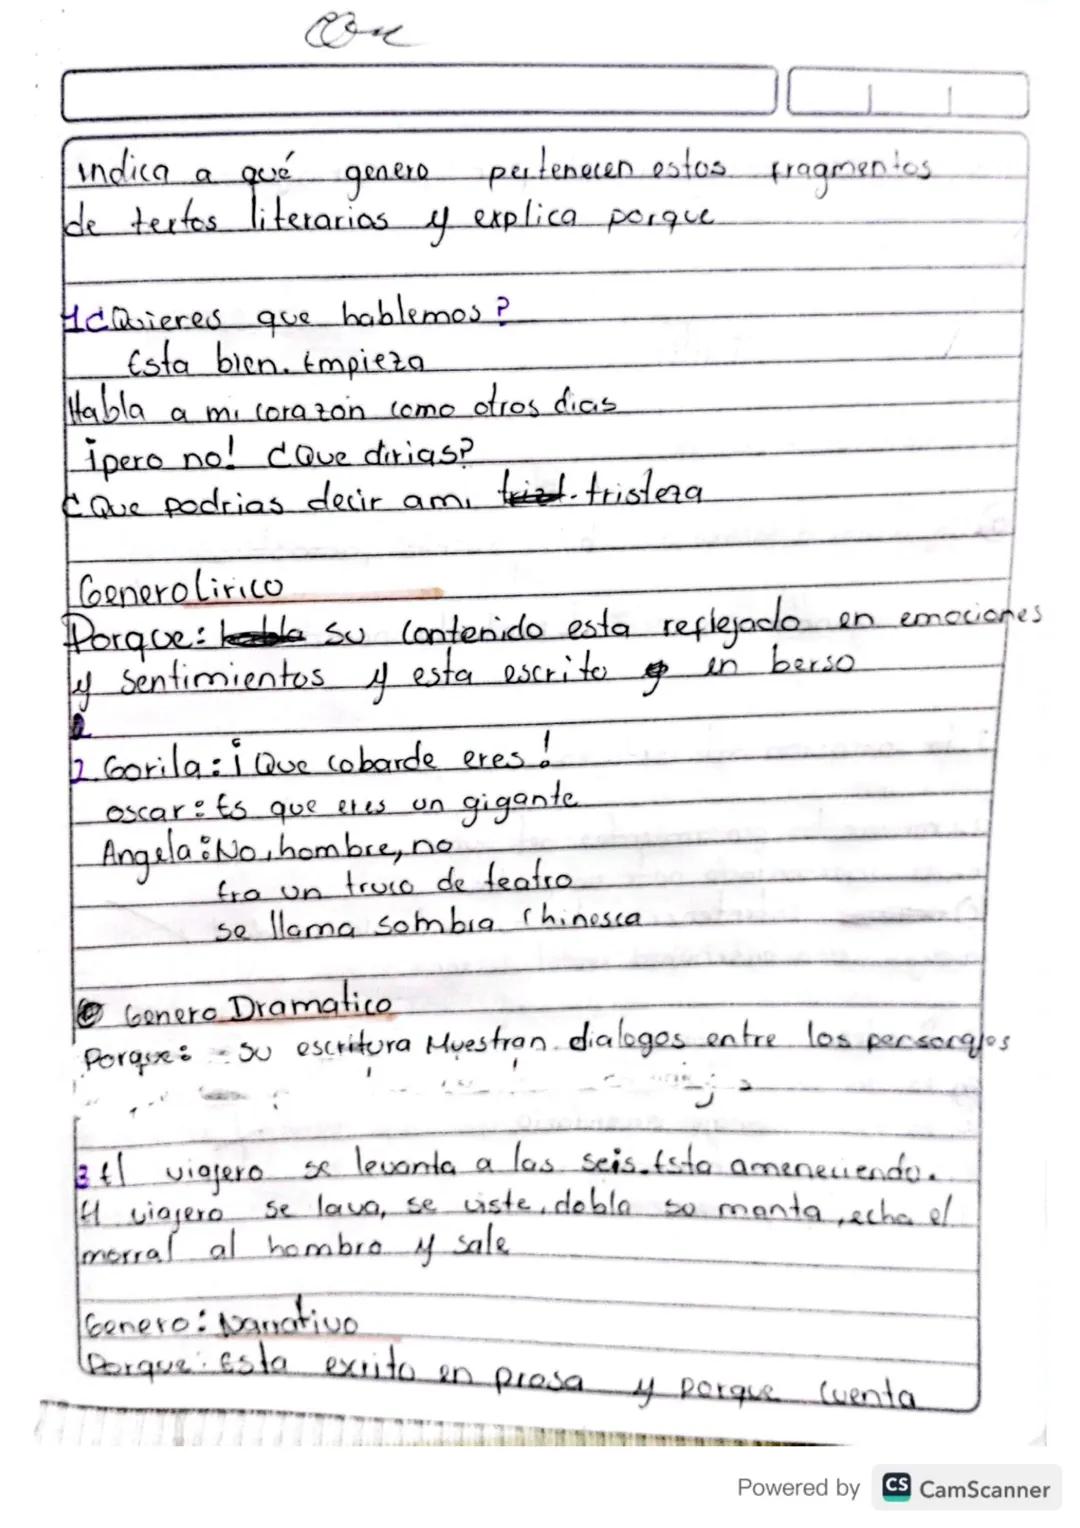 indica a qué genero pertenecen estos fragmentos
de textos literarios y explica porque
1¿Quieres que hablemos?
Esta bien. Empieza
Habla a mi corazon como otros dias
¡pero no! ¿Que dirias?
¿Que podrias decir a mi tristeza
Genero lirico
Porque: su contenido esta reflejado en emociones
y sentimientos y esta escrito en berso
2. Gorila: ¡Que cobarde eres!
oscar: Es que eres un gigante
Angela: No, hombre, no
Era un truco de teatro
se llama sombra chinesca
Genero Dramatico
Porque: su escritura Muestran dialogos entre los personajes
3 El viajero se levanta a las seis. Esta ameneciendo.
El viajero se lava, se viste, dobla su manta, echa el
morral al hombro y sale
Genero: Narrativo
Porque: Esta exrito en prosa y porque cuenta
Powered by CS CamScanner